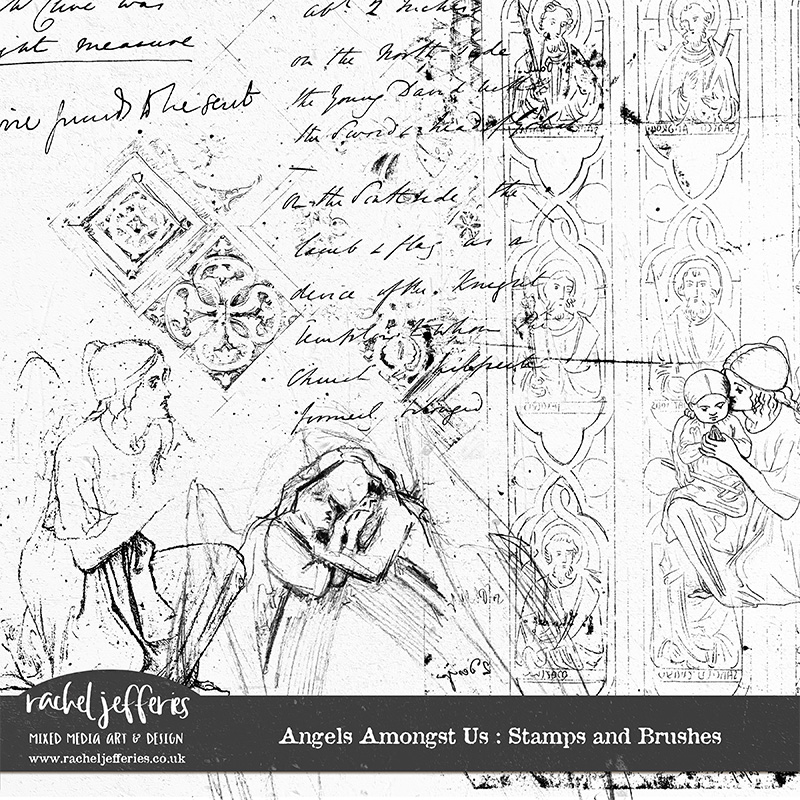 was
abt 2 inches
ght measure
on the North side
the Young David with
ive found to be sent
the Sword & head of
on the South side, the
lamb & flag as a
device of the Knight
Templars to whom the
Church
formerly belonged
rachel jefferies
MIXED MEDIA ART & DESIGN
www.racheljefferies.co.uk
Angels Amongst Us : Stamps and Brushes